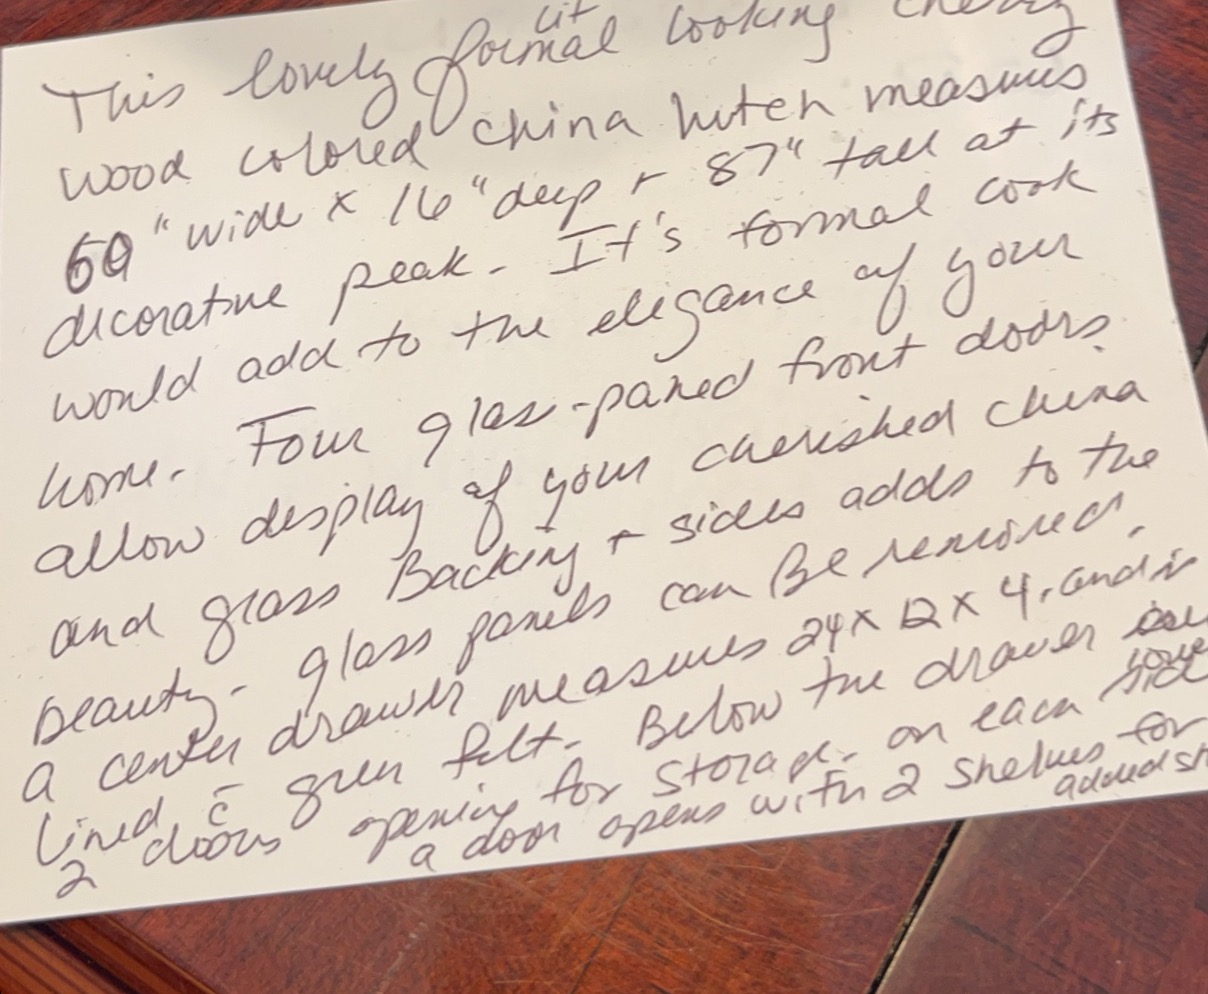 lit
This lovely formal looking cherry
wood colored china hutch measures
60" wide x 16" deep + 87" tall at its
decorative peak. It's formal look
would add to the elegance of your
home. Four glass-paned front doors
allow display of your cherished china
and glass Backing + sides adds to the
beauty. glass panels can Be removed.
a center drawer measures 24 x 12 x 4, and is
lined c̄ green felt. Below the drawer are
2 doors opening for storage. on each side
a door opens with 2 shelves for
added st